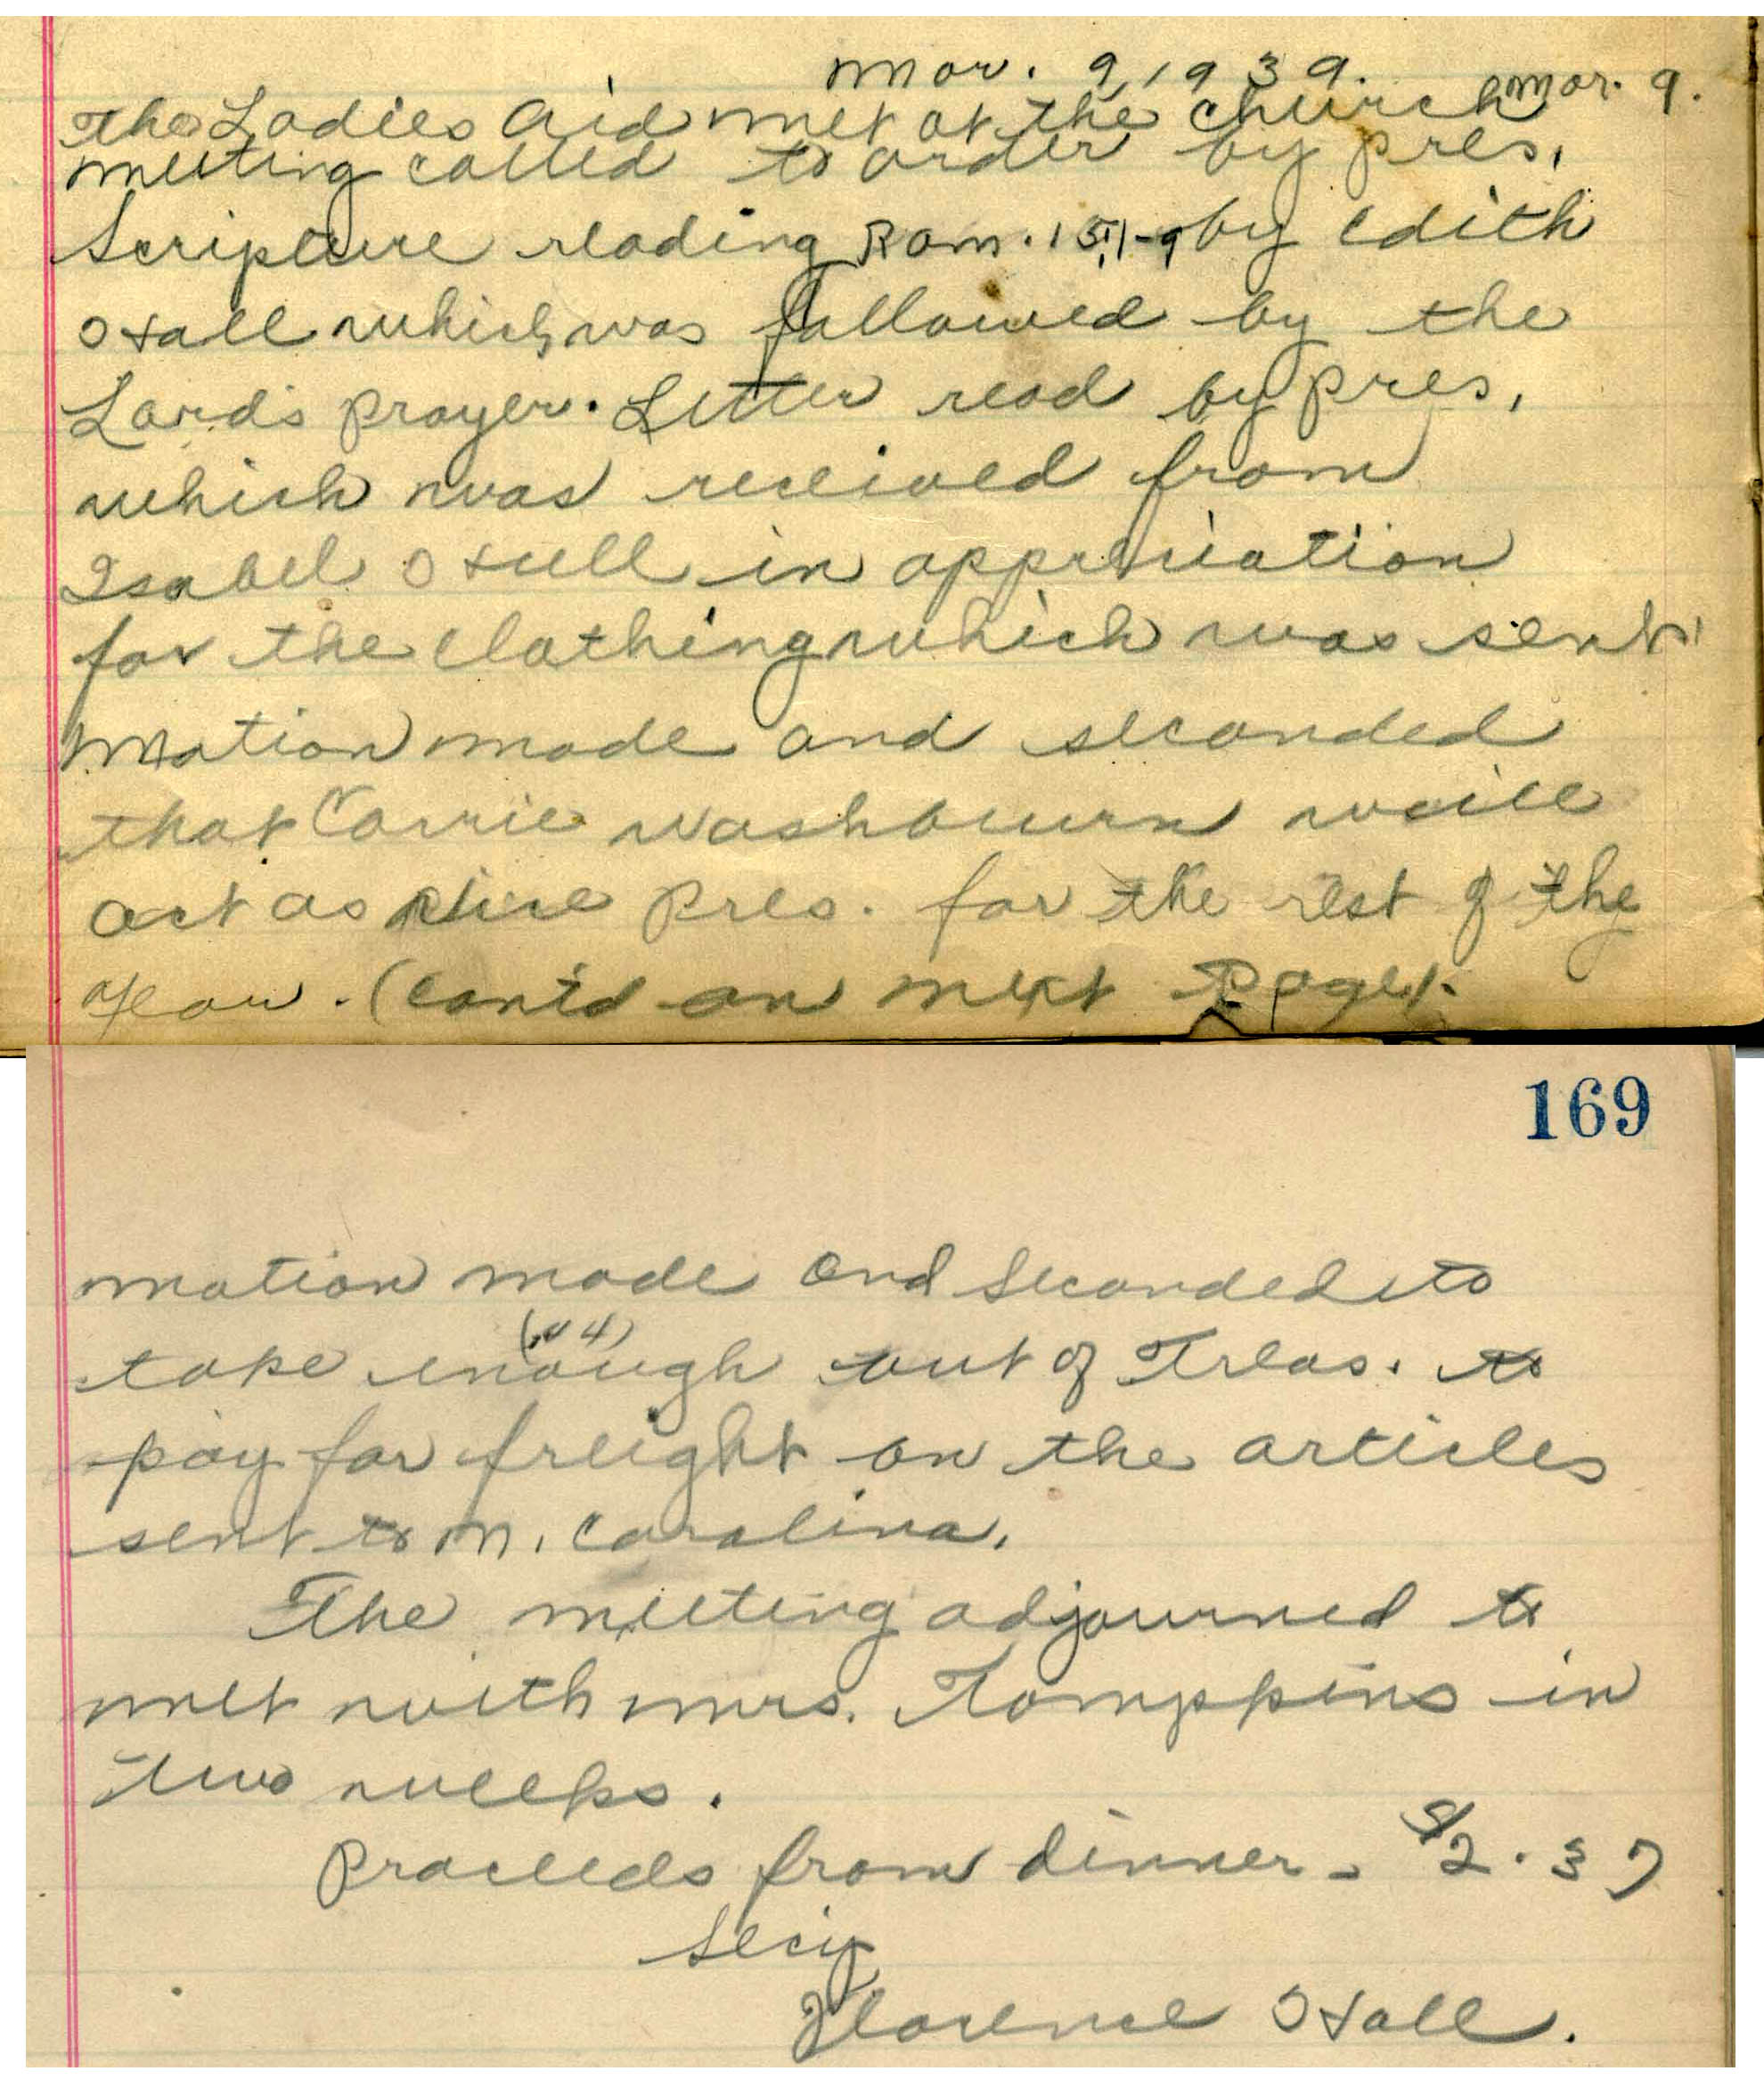 Mar. 9, 1939.
Mar. 9.
The Ladies Aid met at the church
meeting called to order by pres,
Scripture reading Rom. 15,1-9 by Edith
Hall which was followed by the
Lord's prayer. Letter read by pres,
which was received from
Isabel Hull in appreciation
for the clothing which was sent.
Motion made and seconded
that Carrie Washburn will
act as vice Pres. for the rest of the
year. (cont'd on next Page).
169
motion made and seconded to
take enough out of Treas. to
pay for freight on the articles
sent to N. Carolina.
The meeting adjourned to
meet with mrs. Tompkins in
two weeks.
Proceeds from dinner - $2.37
Secy
Florence Hall.